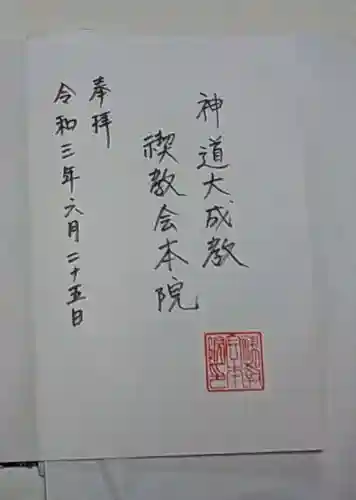 神道大成教
禊教会本院
奉拝
令和三年六月二十五日